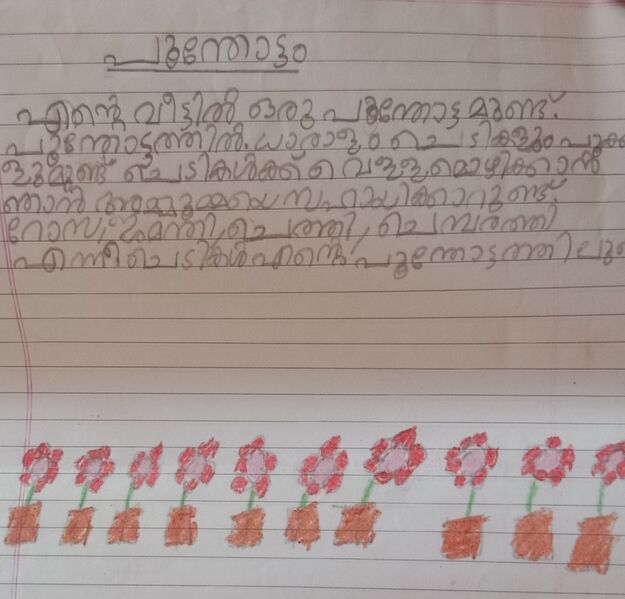 പൂന്തോട്ടം
എന്റെ വീട്ടിൽ ഒരു പൂന്തോട്ടമുണ്ട്.
പൂന്തോട്ടത്തിൽ ധാരാളം ചെടികളും പൂക്ക
ളുമുണ്ട് ചെടികൾക്ക് വെള്ളമൊഴിക്കാൻ
ഞാൻ അമ്മൂമ്മയെ സഹായിക്കാറുണ്ട്.
റോസ, ജമന്തി, ചെത്തി, ചെമ്പരത്തി
എന്നീ ചെടികൾ എന്റെ പൂന്തോട്ടത്തിലു